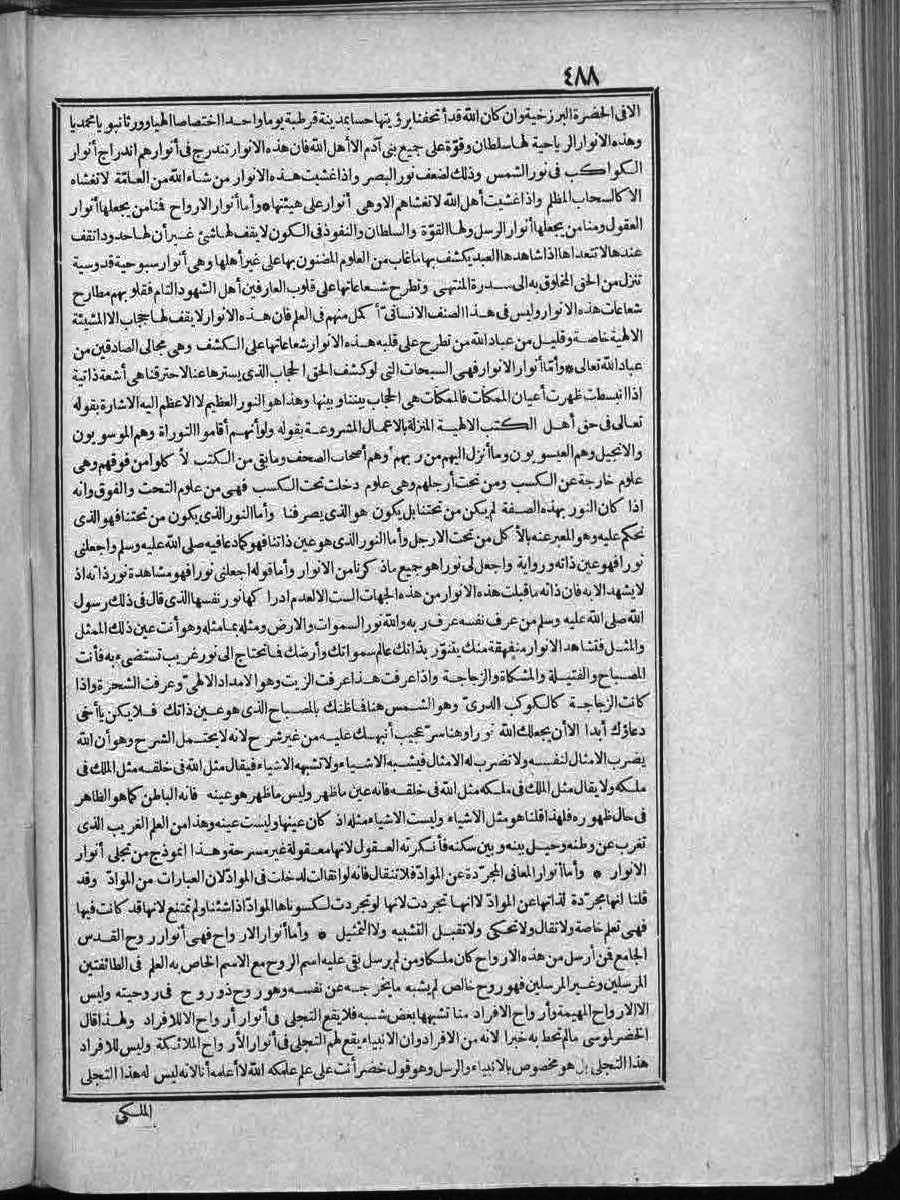 ٤٨٨
الا في الحضرة البرزخية وان كان الله قد أتحفنا برؤيتها حسا بمدينة قرطبة يوما واحدا اختصاصا الهيا وورثا نبويا محمديا
وهذه الانوار الرياحية لها سلطان وقوة على جميع بنى آدم الا أهل الله فان هذه الانوار تندرج فى أنوارهم اندراج أنوار
الكواكب فى نور الشمس وذلك لضعف نور البصر واذا غشيت هذه الانوار من شاء الله من العامّة لا تغشاه
الا كالسحاب المظلم واذا غشيت أهل الله لا تغشاهم الا وهى أنوار على هيئتها * وأما أنوار الارواح فمنا من يجعلها أنوار
العقول ومنا من يجعلها أنوار الرسل ولها القوّة والسلطان والنفوذ فى الكون لا يقف لها شئ غير أن لها حدودا تقف
عندها لا تتعداها اذا شاهدها العبد يكشف بها ما غاب من العلوم المضنون بها على غير أهلها وهى أنوار سبوحية قدوسية
تنزل من الحق المخلوق به الى سدرة المنتهى وتطرح شعاعاتها على قلوب العارفين أهل الشهود التام فقلوبهم مطارح
شعاعات هذه الانوار وليس فى هذا الصنف الانسانى أكمل منهم فى العلم فان هذه الانوار لا يقف لها حجاب الا المشيئة
الالهية خاصة وقليل من عباد الله من تطرح على قلبه هذه الانوار شعاعاتها على الكشف وهى مجالى الصادقين من
عباد الله تعالى * وأمّا أنوار الانوار فهى السبحات التى لو كشف الحق الحجاب الذى يسترها عنا لاحترقنا هى أشعة ذاتية
اذا انبسطت ظهرت أعيان الممكنات فالممكنات هى الحجاب بيننا وبينها وهذا هو النور العظيم لا الاعظم اليه الاشارة بقوله
تعالى فى حق أهل الكتب الالهية المنزلة بالاعمال المشروعة بقوله ولو أنهم أقاموا التوراة وهم الموسويون
والانجيل وهم العيسويون وما أنزل اليهم من ربهم وهم أصحاب الصحف وما بقى من الكتب لأكلوا من فوقهم وهى
علوم خارجة عن الكسب ومن تحت أرجلهم وهى علوم دخلت تحت الكسب فهى من علوم التحت والفوق وانه
اذا كان النور بهذه الصفة لم يكن من تحتنا بل يكون هو الذى يصرفنا وأما النور الذى يكون من تحتنا فهو الذى
نحكم عليه وهو المعبر عنه بالأكل من تحت الارجل وأما النور الذى هو عين ذاتنا فهو كما دعا فيه صلى الله عليه وسلم واجعلنى
نورا فهو عين ذاته ورواية واجعل لى نورا هو جميع ما ذكرنا من الانوار وأما قوله اجعلنى نورا فهو مشاهدة نور ذاته اذ
لا يشهد الا به فان ذاته ما قبلت هذه الانوار من هذه الجهات الست الا لعدم ادراكها نور نفسها الذى قال فى ذلك رسول
الله صلى الله عليه وسلم من عرف نفسه عرف ربه والله نور السموات والارض ومثله بما مثله وهو أنت عين ذلك الممثل
والمثل فتشاهد الانوار منفهقة منك يتنوّر بذاتك عالم سمواتك وأرضك فما تحتاج الى نور غريب تستضىء به فأنت
المصباح والفتيلة والمشكاة والزجاجة واذا عرفت هذا عرفت الزيت وهو الامداد الالهىّ وعرفت الشجرة واذا
كانت الزجاجة كالكوكب الدرىّ وهو الشمس هنا فما ظنك بالمصباح الذى هو عين ذاتك فلا يكن يا أخى
دعاؤك أبدا الا أن يجعلك الله نورا وهنا سرّ عجيب أنبهك عليه من غير شرح لانه لا يحتمل الشرح وهو أن الله
يضرب الامثال لنفسه ولا تضرب له الامثال فيشبه الاشياء ولا تشبهه الاشياء فيقال مثل الله فى خلقه مثل الملك فى
ملكه ولا يقال مثل الملك فى ملكه مثل الله فى خلقه فانه عين ما ظهر وليس ما ظهر هو عينه فانه الباطن كما هو الظاهر
فى حال ظهوره فلهذا قلنا هو مثل الاشياء وليست الاشياء مثله اذ كان عينها وليست عينه وهذا من العلم الغريب الذى
تغرب عن وطنه وحيل بينه وبين سكنه فأنكرته العقول لانها معقولة غير مسرحة وهذا انموذج من تجلى أنوار
الانوار * وأما أنوار المعانى المجرّدة عن الموادّ فلا تنقال فانه لو انقالت لدخلت فى الموادّ لان العبارات من الموادّ وقد
قلنا انها مجرّدة لذاتها عن الموادّ لا انها تجردت لانها لو تجردت لكسوناها الموادّ اذا شئنا ولم تمتنع لانها قد كانت فيها
فهى تعلم خاصة ولا تقال ولا تحكى ولا تقبل التشبيه ولا التمثيل * وأما أنوار الارواح فهى أنوار روح القدس
الجامع فمن أرسل من هذه الارواح كان ملكا ومن لم يرسل بقى عليه اسم الروح مع الاسم الخاص به العلم فى الطائفتين
المرسلين وغير المرسلين فهو روح خالص لم يشبه ما يخرجه عن نفسه وهو روح ذو روح فى روحيته وليس
الا الارواح المهيمة وأرواح الافراد منا تشبهها بعض شبه فلا يقع التجلى فى أنوار أرواح الا للافراد ولهذا قال
الخضر لموسى ما لم تحط به خبرا لانه من الافراد وان الانبياء يقع لهم التجلى فى أنوار الأرواح الملائكة وليس للافراد
هذا التجلى بل هو مخصوص بالانبياء والرسل وهو قول خضر أنت على علم علمكه الله لا أعلمه أنا لانه ليس له هذا التجلى
الملكى